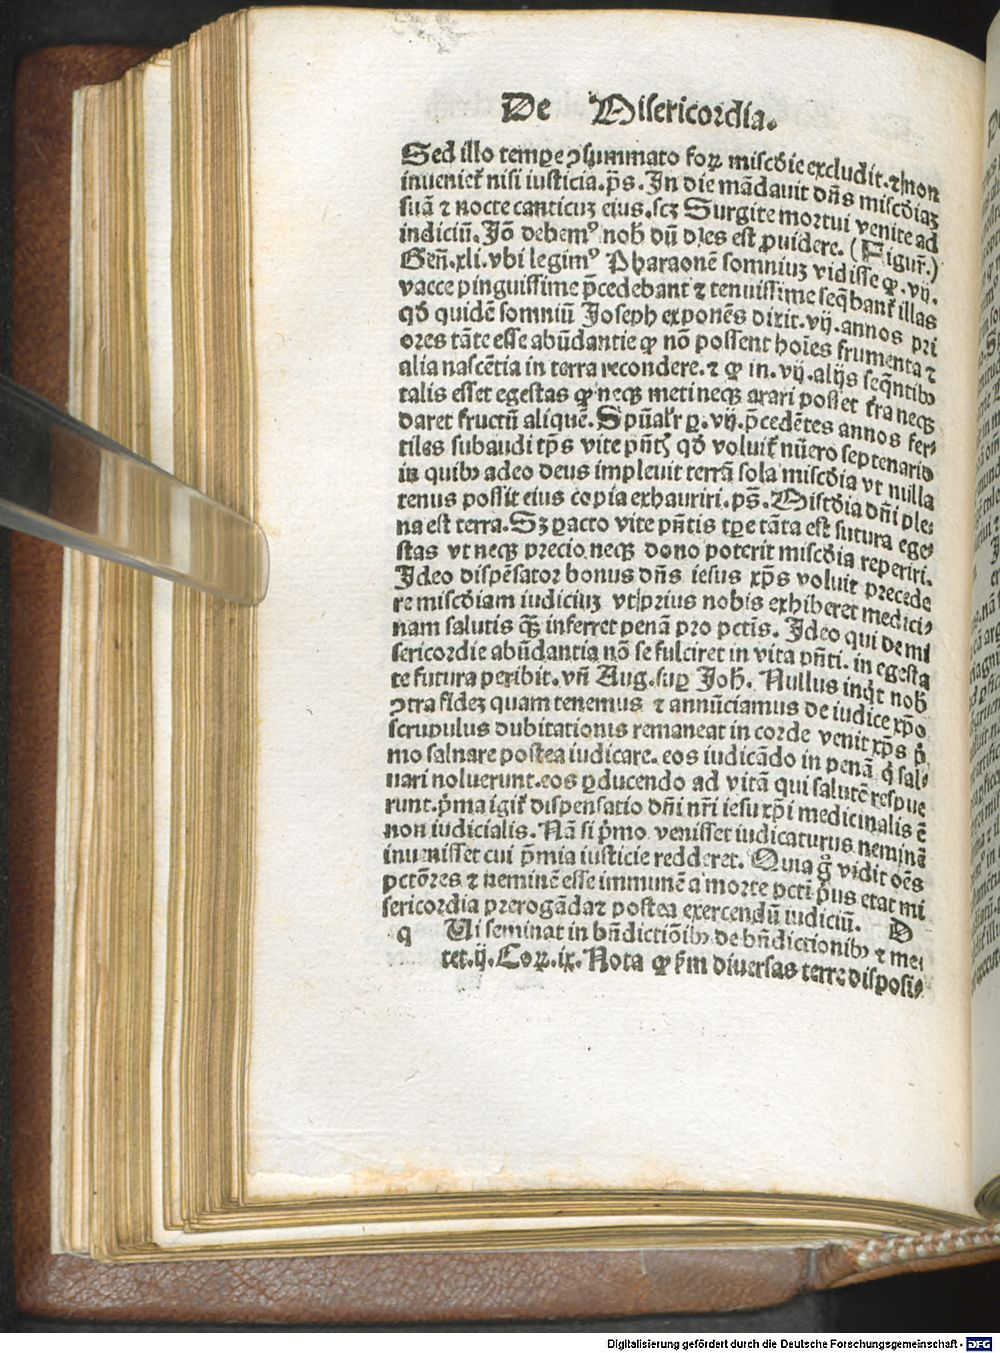 De Misericordia.
Sed illo tempꝑe ꝯsummato foꝝ miscd̄ie excludit. ⁊ non
inueniet̉ nisi iusticia. p̄s. In die mādauit dn̄s miscd̄iaꝫ
suā ⁊ nocte canticuꝫ eius. scꝫ Surgite mortui venite ad
iudiciū. Iō debemꝰ nob̄ dū dies est ꝓuidere. (Figur̄.)
Gen̄. xli. vbi legimꝰ Pharaonē somniuꝫ vidisse ꝙ .vij.
vacce pinguissime p̄cedebant ⁊ tenuissime seq̄bant̉ illas
qd̄ quidē somniū Joseph exponēs dixit. vij. annos pri
ores tāte esse abūdantie ꝙ nō possent hoīes frumenta ⁊
alia nascētia in terra recondere. ⁊ ꝙ in .vij. alijs seq̄ntibꝰ
talis esset egestas ꝙ neqꝫ meti neqꝫ arari posset t̉ra neqꝫ
daret fructū aliquē. Spūalr̄ ꝑ .vij. p̄cedētes annos fer⸗
tiles subaudi tp̄s vite pn̄tꝭ qd̄ voluit̉ nūero septenario
in quibꝰ adeo deus impleuit terrā sola miscd̄ia vt nulla
tenus possit eius copia exhauriri. p̄s. Miscd̄ia dn̄i ple⸗
na est terra. Sꝫ ꝑacto vite pn̄tis tꝑe tāta est futura ege⸗
stas vt neqꝫ precio neqꝫ dono poterit miscd̄ia reperiri.
Ideo dispēsator bonus dn̄s iesus xp̄s voluit precede
re miscd̄iam iudiciuꝫ vt prius nobis exhiberet medici⸗
nam salutis q̄ꝫ inferret penā pro pctīs. Ideo qui de mi
sericordie abūdantia nō se fulciret in vita pn̄ti. in egesta
te futura peribit. vn̄ Aug. suꝑ Joh̄. Nullus inqͥt nob̄
ꝯtra fideꝫ quam tenemus ⁊ annūciamus de iudice xp̄o
scrupulus dubitationis remaneat in corde venit xp̄s pͥ
mo saluare postea iudicare. eos iudicādo in penā qͥ sal⸗
uari noluerunt. eos ꝓducendo ad vitā qui salutē respue
runt. pͥma igit̉ dispensatio dn̄i nr̄i iesu xp̄i medicinalis ē
non iudicialis. Nā si pͥmo venisset iudicaturus neminē
inuenisset cui p̄mia iusticie redderet. Quia gͦ vidit oēs
pctōres ⁊ neminē esse immunē a morte pcti pͥus erat mi
sericordia prerogāda ⁊ postea exercendū iudiciū. D
q Ui seminat in bn̄dictiōibꝰ de bn̄dictionibꝰ ⁊ me⸗
tet. ij. Coꝝ. ix. Nota ꝙ ẜm diuersas terre disposi⸗
Digitalisierung gefördert durch die Deutsche Forschungsgemeinschaft - DFG